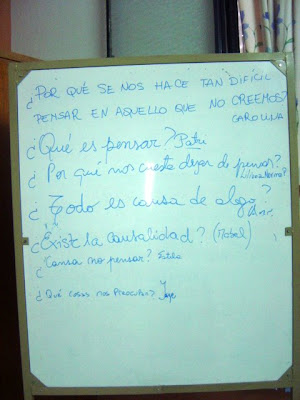 ¿POR QUÉ SE NOS HACE TAN DIFÍCIL
PENSAR EN AQUELLO QUE NO CREEMOS?
CAROLINA
¿Qué es pensar? Patri
¿Por que nos cuesta dejar de pensar?
Liliana
¿Todo es causa de algo?
¿Exist la causalidad? (Mabel)
¿Cansa no pensar? Estela
¿Qué cosas nos preocupan? Jorge